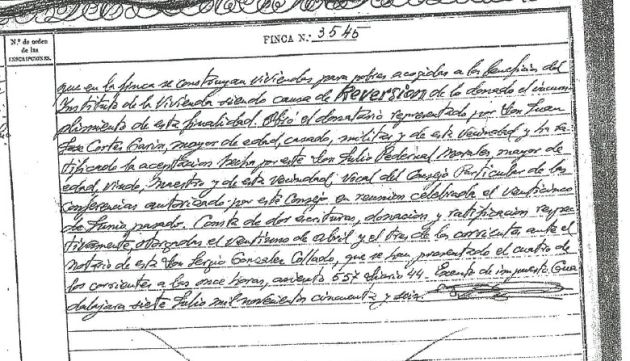 N.º de orden
de las
INSCRIPCIONES
FINCA N.º 3545
que en la finca se construyan viviendas para pobres acogidas a los beneficios del
Instituto de la Vivienda siendo causa de Reversion de lo donado el incum
plimiento de esta finalidad. el donatario representado por Don Juan
Jose Cortés mayor de edad, casado, militar y de esta vecindad y ha ra
tificado la aceptacion hecha por este Don Julio Pedernal Morales mayor de
edad, viudo, Maestro y de esta vecindad, Vocal del Consejo Particular de las
Conferencias autorizado por este Consejo en reunion celebrada el veinticinco
de Junio pasado. Consta de dos escrituras, donacion y ratificacion respec
tivamente, otorgadas el veintiuno de abril y el tres de los corrientes ante el
notario de esta Don Sergio Gonzalez Collado, que se han presentado el cuatro de
los corrientes a las once horas, asiento 557 diario 44. Exento de impuesto. Gua
dalajara siete Julio mil novecientos cincuenta y seis.